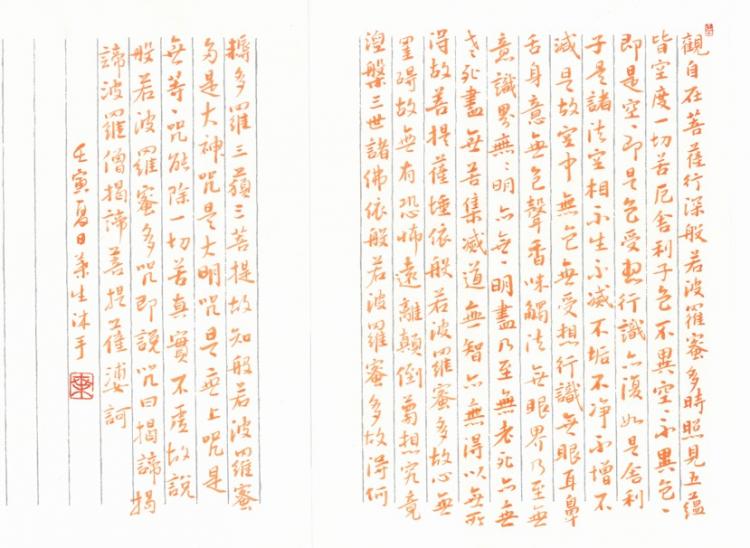 觀自在菩薩行深般若波羅蜜多時照見五蘊
皆空度一切苦厄舍利子色不異空〻不異色〻
即是空〻即是色受想行識亦復如是舍利
子是諸法空相不生不滅不垢不净不增不
減是故空中無色無受想行識無眼耳鼻
舌身意無色聲香味觸法無眼界乃至無
意識界無〻明亦無〻明盡乃至無老死亦無
老死盡無苦集滅道無智亦無得以無所
得故菩提薩埵依般若波羅蜜多故心無
罣礙故無有恐怖遠離顛倒夢想究竟
涅槃三世諸佛依般若波羅蜜多故得阿
耨多羅三藐三菩提故知般若波羅蜜
多是大神咒是大明咒是無上咒是
無等〻咒能除一切苦真實不虛故說
般若波羅蜜多咒即說咒曰揭諦揭
諦波羅僧揭諦菩提薩婆訶
壬寅夏日生沐手